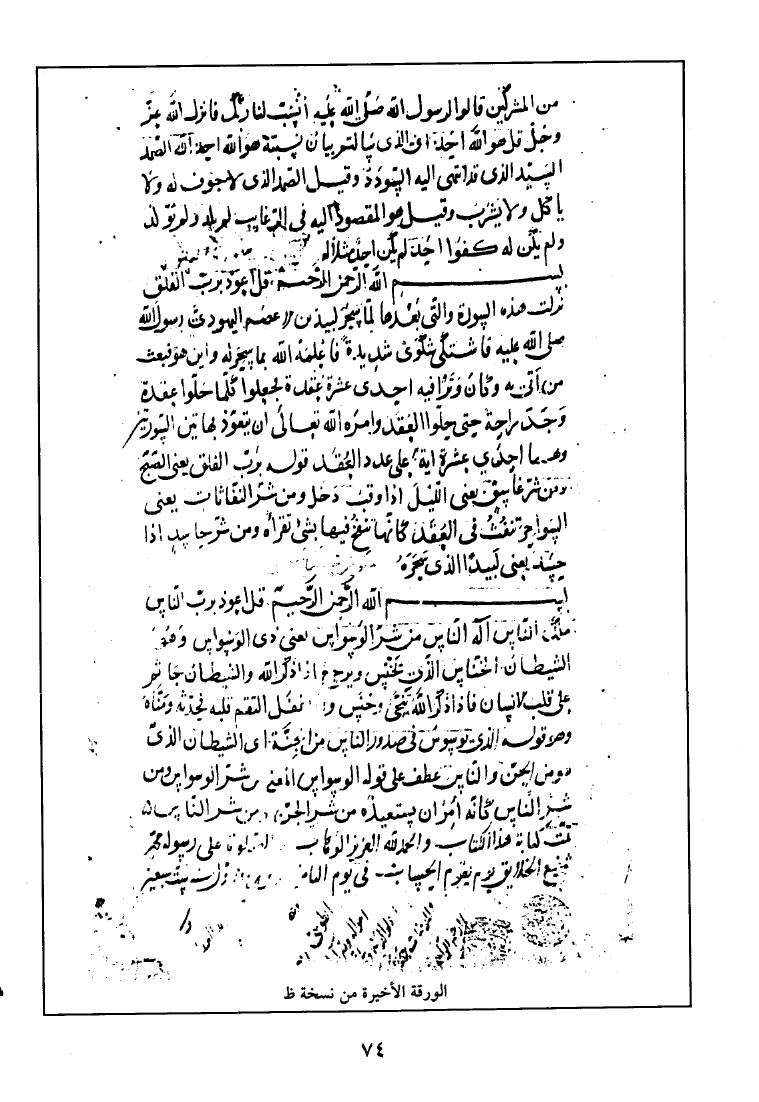 من المشركين قالوا لرسول الله صلى الله عليه أنسب لنا ربك فأنزل الله عز
وجل قل هو الله احد ان الذى سألتم بيان نسبته هو الله احد الله الصمد
السيد الذى قد انتهى اليه السودد وقيل الصمد الذى لا جوف له ولا
يأكل ولا يشرب وقيل هو المقصود اليه فى الرغايب لم يلد ولم يولد
ولم يكن له كفوا احد لم يكن احد مثلا له
بسم الله الرحمن الرحيم قل اعوذ برب الفلق
نزلت هذه السورة والتى بعدها لما سحر لبيد بن الاعصم اليهودى رسول الله
صلى الله عليه فاشتكى شكوى شديدة فأعلمه الله بما سحر له واين هو فبعث
من أتى به وكان وترا فيه احدى عشرة عقدة فجعلوا كلما حلوا عقدة
وجد راحة حتى حلوا العقد وامره الله تعالى ان يتعوذ بهاتين السورتين
وهما احدى عشرة اية على عدد العقد قوله برب الفلق يعنى الصبح
ومن شر غاسق يعنى الليل اذا وقب دخل ومن شر النفاثات يعنى
السواحر تنفث فى العقد كأنها تنفخ فيها بشئ تقرأه ومن شر حاسد اذا
حسد يعنى لبيدا الذى سحره
بسم الله الرحمن الرحيم قل اعوذ برب الناس
ملك الناس اله الناس من شر الوسواس يعنى ذى الوسواس وهو
الشيطان الخناس الذى يخنس ويرجع اذا ذكر الله والشيطان جاثم
على قلب الانسان فاذا ذكر الله تنحى وخنس و التقم قلبه فحدثه ومناه
وهو قوله الذى يوسوس فى صدور الناس من الجنة اى الشيطان الذى
هو من الجن والناس عطف على قوله الوسواس المعنى من شر الوسواس ومن
شر الناس كأنه امر ان يستعيذه من شر الجن ومن شر الناس
تمت كتابة هذا الكتاب والحمد لله العزيز الوهاب على رسوله محمد
شفيع الخلايق يوم يقوم الحساب فى يوم
الورقة الأخيرة من نسخة ظ
٧٤